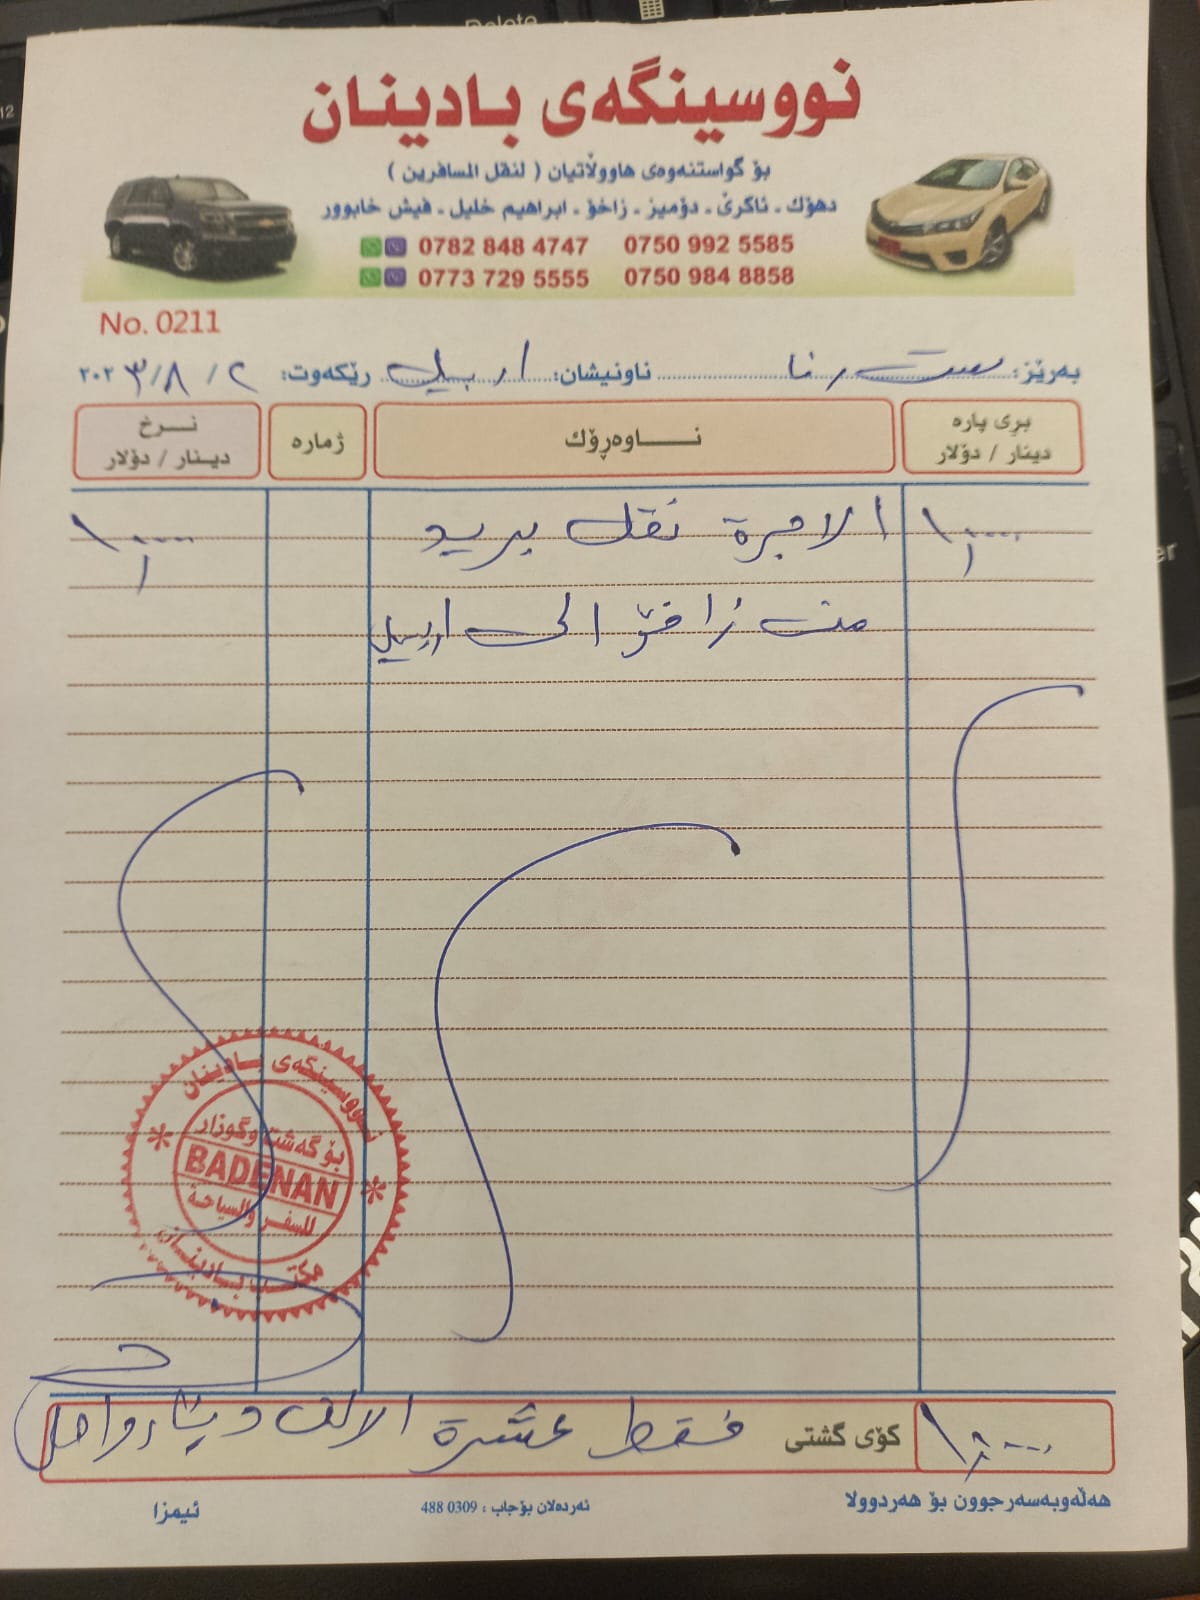 Delete
نووسینگەی بادینان
بۆ گواستنەوەی هاووڵاتیان ( لنقل المسافرین )
دهۆك ـ ئاكرێ ـ دۆمیز ـ زاخۆ ـ ابراهیم خلیل ـ فیش خابوور
0782 848 4747 0750 992 5585
0773 729 5555 0750 984 8858
No. 0211
بەرێز: ست رنا ناونیشان: اربيل رێكەوت: ٢ / ٨ / ٢٠٢٣
بڕی پارە ناوەڕۆك ژمارە نرخ
دینار / دۆلار دینار / دۆلار
١٠٠٠٠ الاجرة نقل بريد ١٠٠٠٠
من زاخو الى اربيل
نووسینگەی بادینان
بۆ گەشت وگوزار
BADENAN
للسفر والسياحة
مكتب بادينان
١٠٠٠٠ كۆی گشتی فقط عشرة الالف دينار
هەڵەوبەسەرچوون بۆ هەردوولا ئەردەلان بۆچاپ : 0309 488 ئیمزا